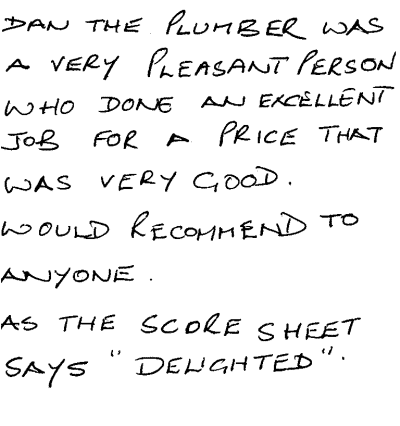 DAN THE PLUMBER WAS
A VERY PLEASANT PERSON
WHO DONE AN EXCELLENT
JOB FOR A PRICE THAT
WAS VERY GOOD.
WOULD RECOMMEND TO
ANYONE.
AS THE SCORE SHEET
SAYS "DELIGHTED".